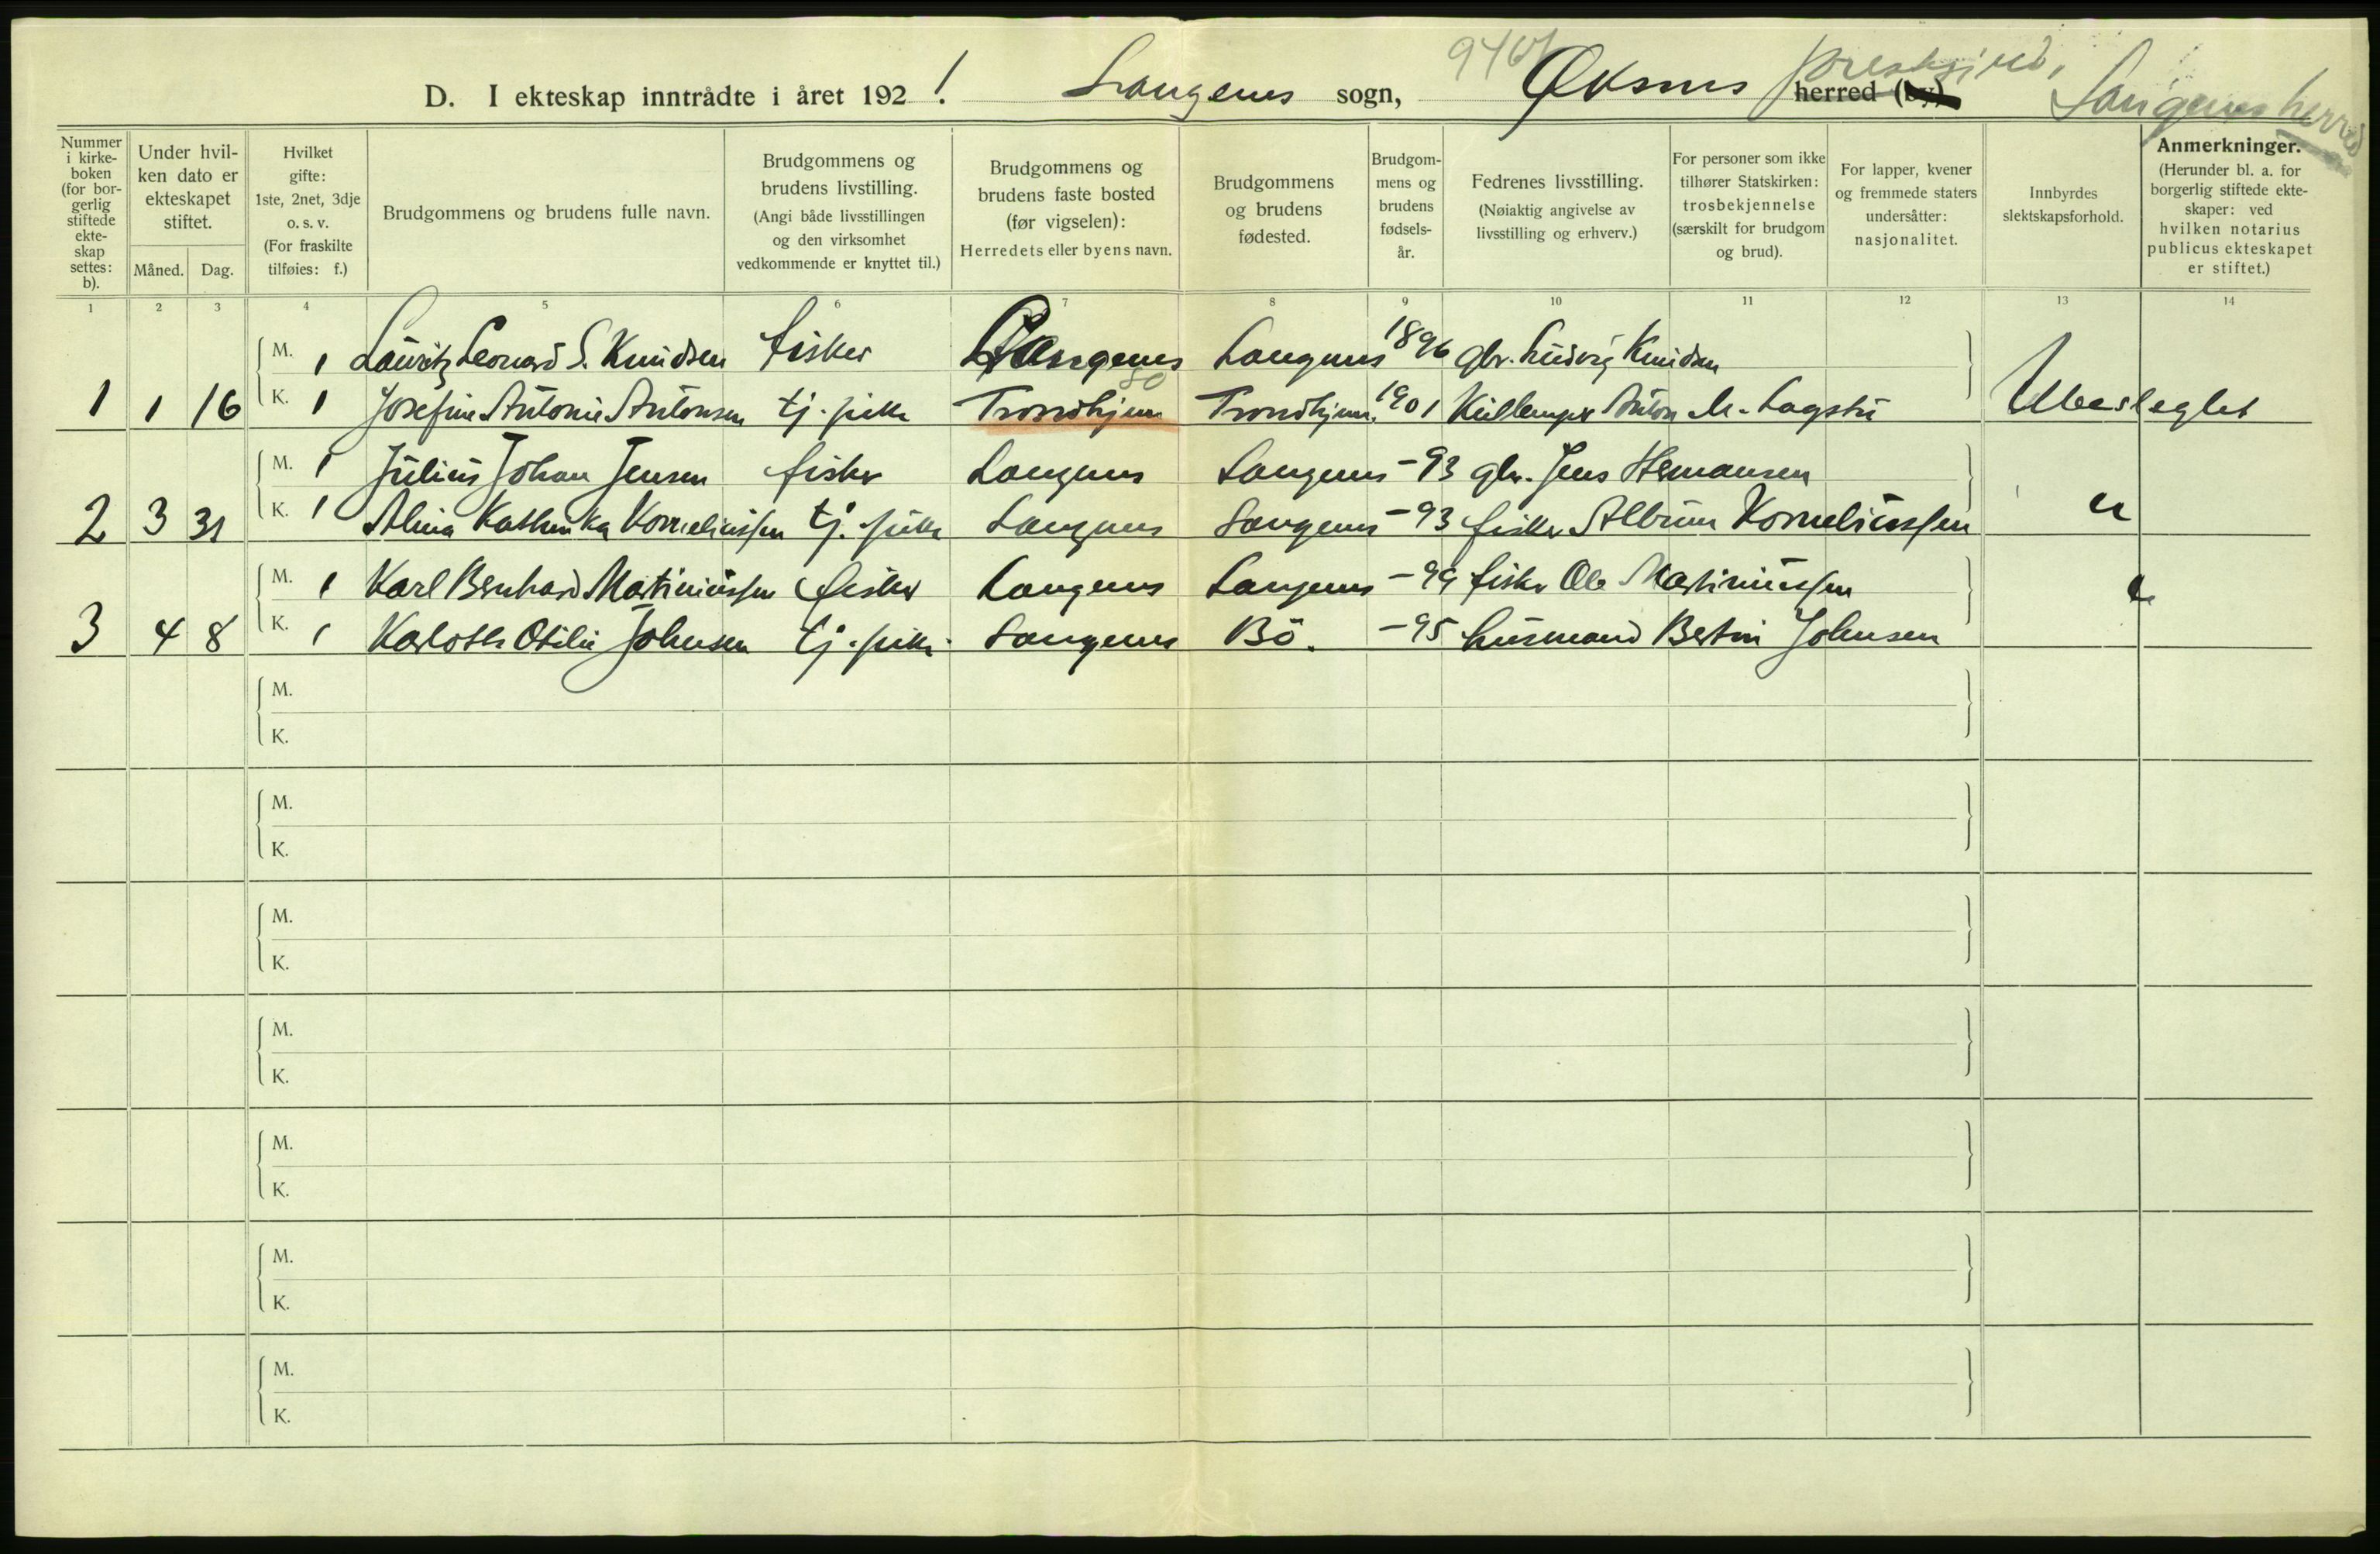 D. I ekteskap inntrådte i året 1921. Langenes sogn, Øksnes herred (by) prestegjeld, Langenes herred
Nummer i kirkeboken (for borgerlig stiftede ekteskap settes: b).
Under hvilken dato er ekteskapet stiftet.
Måned. Dag.
Hvilket gifte: 1ste, 2net, 3dje o. s. v. (For fraskilte tilføies: f.)
Brudgommens og brudens fulle navn.
Brudgommens og brudens livstilling. (Angi både livsstillingen og den virksomhet vedkommende er knyttet til.)
Brudgommens og brudens faste bosted (før vigselen): Herredets eller byens navn.
Brudgommens og brudens fødested.
Brudgommens og brudens fødselsår.
Fedrenes livsstilling. (Nøiaktig angivelse av livsstilling og erhverv.)
For personer som ikke tilhører Statskirken: trosbekjennelse (særskilt for brudgom og brud).
For lapper, kvener og fremmede staters undersåtter: nasjonalitet.
Innbyrdes slektskapsforhold.
Anmerkninger. (Herunder bl. a. for borgerlig stiftede ekteskaper: ved hvilken notarius publicus ekteskapet er stiftet.)
1 2 3 4 5 6 7 8 9 10 11 12 13 14
M. 1 Lauritz Leonard S. Knudsen fisker Langenes Langenes 1896 gbr. Ludvig Knudsen
1 1 16 K. 1 Josefine Antonie Antonsen tj. pike Trondhjem Trondhjem 1901 Anton M. Ubeslegtet
M. 1 Julius Johan Jensen fisker Langenes Langenes -93 gbr. Jens Hemansen
2 3 31 K. 1 Alma Kathinka Korneliussen tj. pike Langenes Langenes -93 fisker Korneliussen "
M. 1 Karl Bernhard Martiniussen fisker Langenes Langenes -99 fisker Ole Martiniussen "
3 4 8 K. 1 Karlotte Otilie Johnsen tj. pike Langenes Bö. -95 husmand Bertin Johnsen
M.
K.
M.
K.
M.
K.
M.
K.
M.
K.
M.
K.
M.
K.